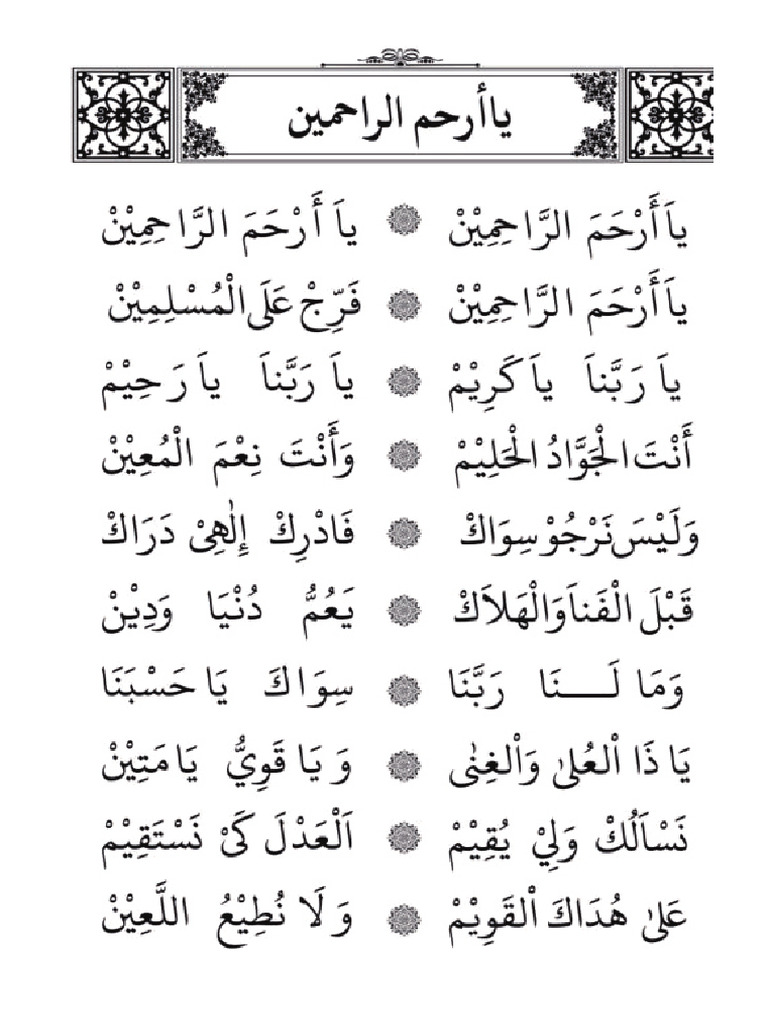 ياأرحم الراحمين
ياَ أَرْحَمَ الرَّاحِمِيْنْ ۞ ياَ أَرْحَمَ الرَّاحِمِيْنْ
ياَ أَرْحَمَ الرَّاحِمِيْنْ ۞ فَرِّجْ عَلَى الْمُسْلِمِيْنْ
ياَ رَبَّناَ ياَ كَرِيْمْ ۞ ياَ رَبَّناَ ياَ رَحِيْمْ
أَنْتَ الْجَوَّادُ الْحَلِيْمْ ۞ وَأَنْتَ نِعْمَ الْمُعِيْنْ
وَلَيْسَ نَرْجُوْ سِوَاكْ ۞ فَادْرِكْ إِلٰهِىْ دَرَاكْ
قَبْلَ الْفَناَ وَالْهَلاَكْ ۞ يَعُمُّ دُنْيَا وَدِيْنْ
وَمَا لَـــنَا رَبَّنَا ۞ سِوَاكَ يَا حَسْبَنَا
يَا ذَا الْعُلىٰ وَالْغِنٰى ۞ وَيَا قَوِيُّ يَا مَتِيْنْ
نَسْاَلُكْ وَلِيْ يُقِيْمْ ۞ اَلْعَدْلَ كَىْ نَسْتَقِيْمْ
عَلىٰ هُدَاكَ الْقَوِيْمْ ۞ وَلَا نُطِيْعُ اللَّعِيْنْ